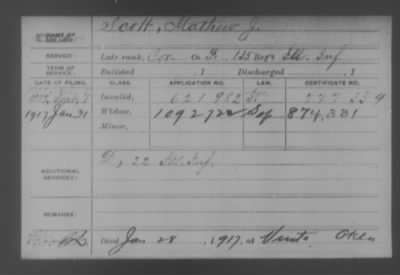 NAME OF SOLDIER: Scott, Mathew J.
SERVICE: Late rank, Cor. Co. F, 135 Reg't Ill. Inf.
TERM OF SERVICE: Enlisted , 1 Discharged , 1
DATE OF FILING. CLASS. APPLICATION NO. LAW. CERTIFICATE NO.
Invalid, 621,982
1917 Jan. 31 Widow, 1092722 874,331
Minor,
ADDITIONAL SERVICES: D, 22 Ill. Inf.
REMARKS:
Died Jan 28, 1917, at Vinita Okla